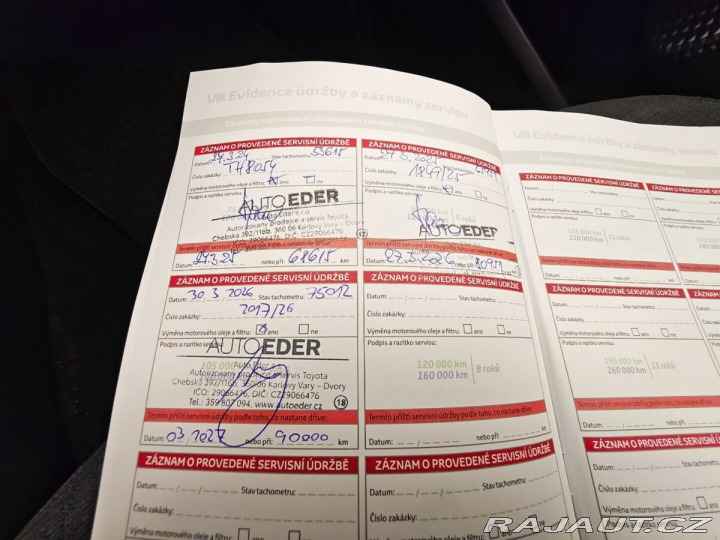 VIII. Evidence údržby a záznamy servisu
Záznamy o provedení předepsané servisní údržby
ZÁZNAM O PROVEDENÉ SERVISNÍ ÚDRŽBĚ
Datum: 27.3.24 Stav tachometru: 53615
Číslo zakázky: 1748054
Výměna motorového oleje a filtru: ano ne
Podpis a razítko servisu:
AUTO EDER
Auto Eder s.r.o.
Autorizovaný prodejce a servis Toyota
Chebská 392/116b, 360 06 Karlovy Vary – Dvory
IČO: 29066476, DIČ: CZ29066476
Termín příští servisní údržby podle toho, co nastane dříve:
27.3.25 nebo při: 68615 km
ZÁZNAM O PROVEDENÉ SERVISNÍ ÚDRŽBĚ
Datum: 27.3.2025
Číslo zakázky: 1847/25
Výměna motorového oleje a filtru: ano ne
Podpis a razítko servisu:
6 roků
AUTO EDER
Termín příští servisní údržby podle toho, co nastane dříve:
27.3.2026 nebo při: km
ZÁZNAM O PROVEDENÉ SERVISNÍ ÚDRŽBĚ
Datum: 30.3.2026 Stav tachometru: 75012
Číslo zakázky: 2017/26
Výměna motorového oleje a filtru: ano ne
Podpis a razítko servisu:
AUTO EDER
Auto Eder s.r.o.
Autorizovaný prodejce a servis Toyota
Chebská 392/116b, 360 06 Karlovy Vary – Dvory
IČO: 29066476, DIČ: CZ29066476
Tel.: 359 807 094, www.autoeder.cz 18
Termín příští servisní údržby podle toho, co nastane dříve:
Datum: 03.2027 nebo při: 90000 km
ZÁZNAM O PROVEDENÉ SERVISNÍ ÚDRŽBĚ
Datum: Stav tachometru:
Číslo zakázky:
Výměna motorového oleje a filtru: ano ne
Podpis a razítko servisu:
120 000 km
160 000 km 8 roků
Termín příští servisní údržby podle toho, co nastane dříve:
Datum: nebo při: km
ZÁZNAM O PROVEDENÉ SERVISNÍ ÚDRŽBĚ
Datum: Stav tachometru:
Číslo zakázky:
Výměna motorového oleje a filtru: ano ne
ZÁZNAM O PROVEDENÉ SERVISNÍ ÚDRŽBĚ
Datum: Stav tachometru:
Číslo zakázky:
Výměna motorového oleje a filtru: ano
VIII. Evidence údržby a záznamy servisu
ZÁZNAM O PROVEDENÉ SERVISNÍ ÚDRŽBĚ
Datum: Stav tachometru:
Číslo zakázky:
Výměna motorového oleje a filtru: ano ne
Podpis a razítko servisu:
165 000 km
220 000 km 11 roků
Termín příští servisní údržby podle toho, co nastane dříve:
Datum: nebo při: km
ZÁZNAM O PROVEDENÉ SERVISNÍ ÚDRŽBĚ
Datum: Stav tachometru:
Číslo zakázky:
Výměna motorového oleje a filtru: ano ne
Podpis a razítko servisu:
195 000 km
260 000 km 13 roků
Termín příští servisní údržby podle toho, co nastane dříve:
Datum: nebo při: km
ZÁZNAM O PROVEDENÉ SERVISNÍ ÚDRŽBĚ
Datum: Stav tachometru:
Číslo zakázky:
RAJAUT.CZ